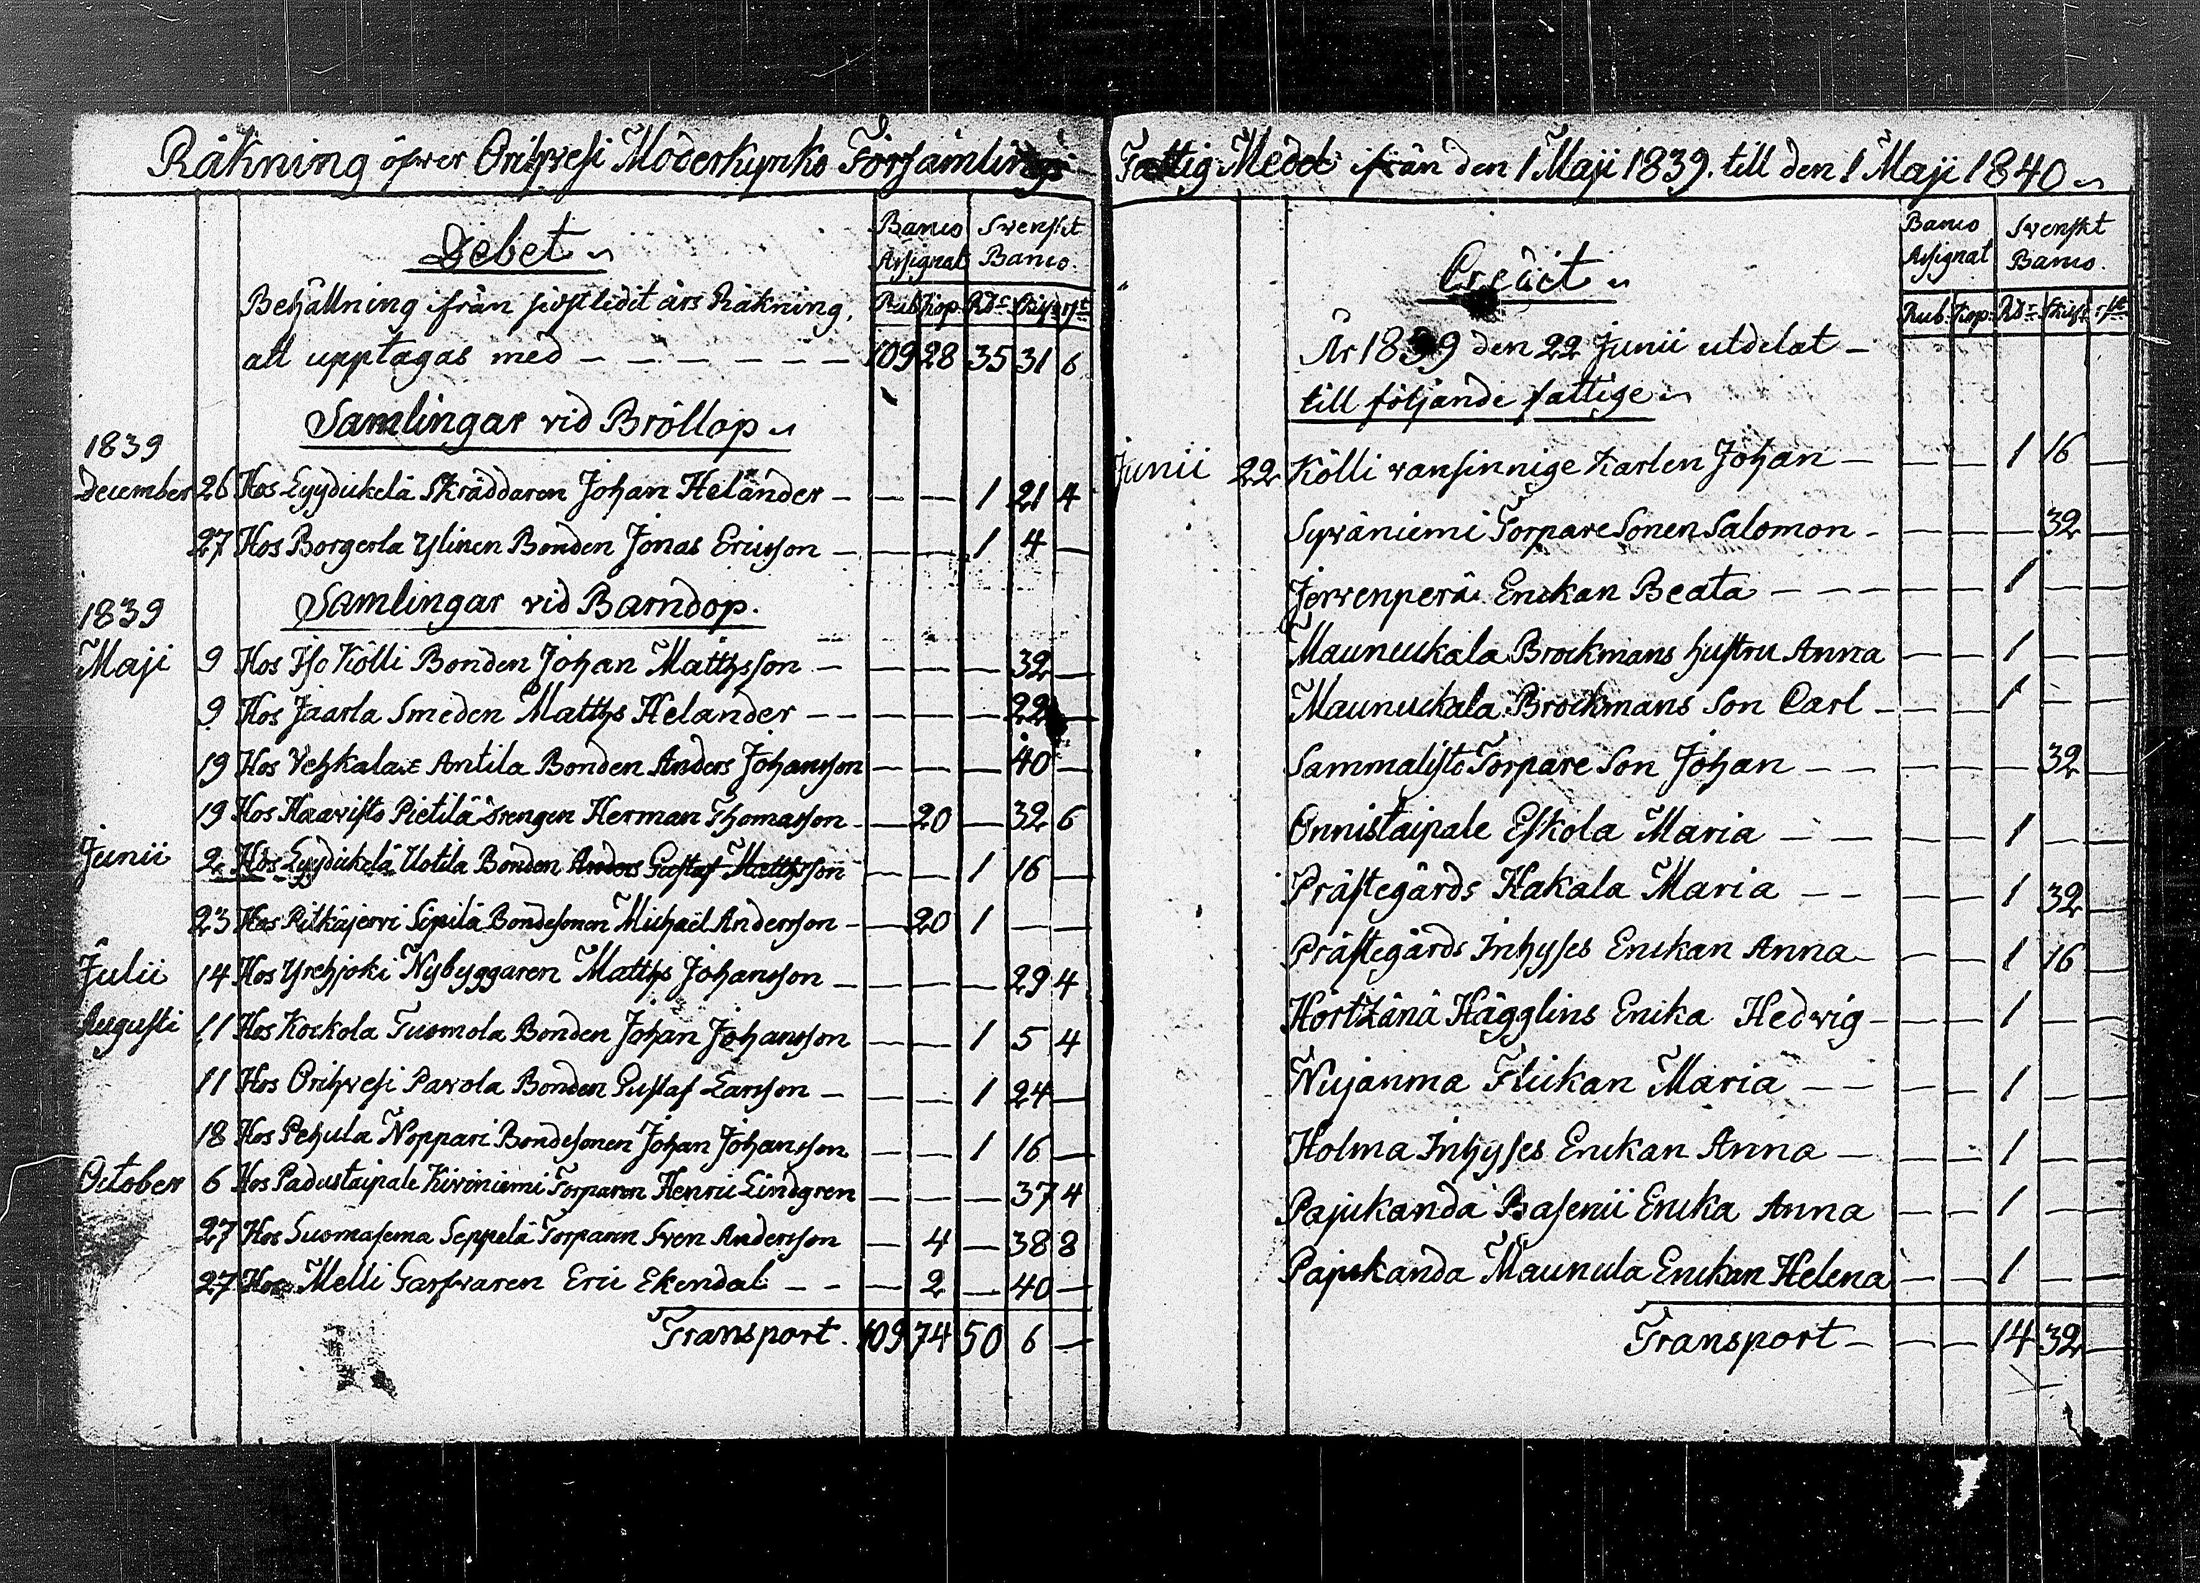 Räkning öfwer Orihwesi Moderkyrko Församlings
Debet
Banco Assignat
Svenskt Banco.
Rub. Kop. Rdr Skill. rst.
Behållning ifrån sistledit års Räkning,
att upptagas med — — — — — — 109 28 35 31 6
Samlingar vid Bröllop
1839
December 26 Hos Eyydickelä Skräddaren Johan Helander — — — 1 21 4
27 Hos Borgerla Ylinen Bonden Jonas Ericsson — — — 1 4 —
1839
Samlingar vid Barndop.
Maji 9 Hos Iso Kölli Bonden Johan Mattsson — — — — 32 —
9 Hos Jaarla Smeden Matths Helander — — — — — 22 —
19 Hos Vehkala Antila Bonden Anders Johansson — — — 40 —
19 Hos Haavisto Pietilä Drengen Herman Thomasson — — 20 — 32 6
Junii 2 Hos Eyydickelä Uotila Bonden Anders Gustaf Mattsson — — 1 16 —
23 Hos Pitkäjervi Sipilä Bondesonen Michaël Andersson — — 20 1 — —
Julii 14 Hos Yrehjoki Nybyggaren Matths Johansson — — — — 29 4
Augusti 11 Hos Kockola Tuomola Bonden Johan Johansson — — 1 5 4
11 Hos Orihvesi Pavola Bonden Gustaf Larsson — — — 1 24 —
18 Hos Pehula Noppari Bondesonen Johan Johansson — — 1 16 —
October 6 Hos Padustaipale Kiviniemi Torparen Henric Lindgren — — — 37 4
27 Hos Suomasema Seppelä Torparen Sven Andersson — 4 — 38 8
27 Hos Melli Garfvaren Eric Ekendal — — — 2 — 40 —
Transport. 109 74 50 6 —
Fattig Medel ifrån den 1 Maji 1839. till den 1 Maji 1840
Credit
Banco Assignat
Svenskt Banco.
Rub. Kop. Rdr Skill. rst.
År 1839 den 22 Junii utdelat —
till följande fattige
Junii 22 Kölli vansinnige Karlen Johan — — — 1 16 —
Syväniemi Torpare Sonen Salomon — — — — 32 —
Jervenperä Enckan Beata — — — — — 1 — —
Maunuckala Brockmans hustru Anna — — 1 — —
Maunuckala Brockmans Son Carl — — — 1 — —
Sammalisto Torpare Son Johan — — — — — 32 —
Onnistaipale Eskola Maria — — — — 1 — —
Prästegårds Hakala Maria — — — — 1 32 —
Prästegårds Inhyses Enckan Anna — — — 1 16 —
Hägglins Encka Hedvig — — — 1 — —
Maria — — — — 1 — —
Holma Inhyses Enckan Anna — — — 1 — —
Pajukanda Encka Anna — — 1 — —
Pajukanda Maunula Enckan Helena — — 1 — —
Transport — — — 14 32 —